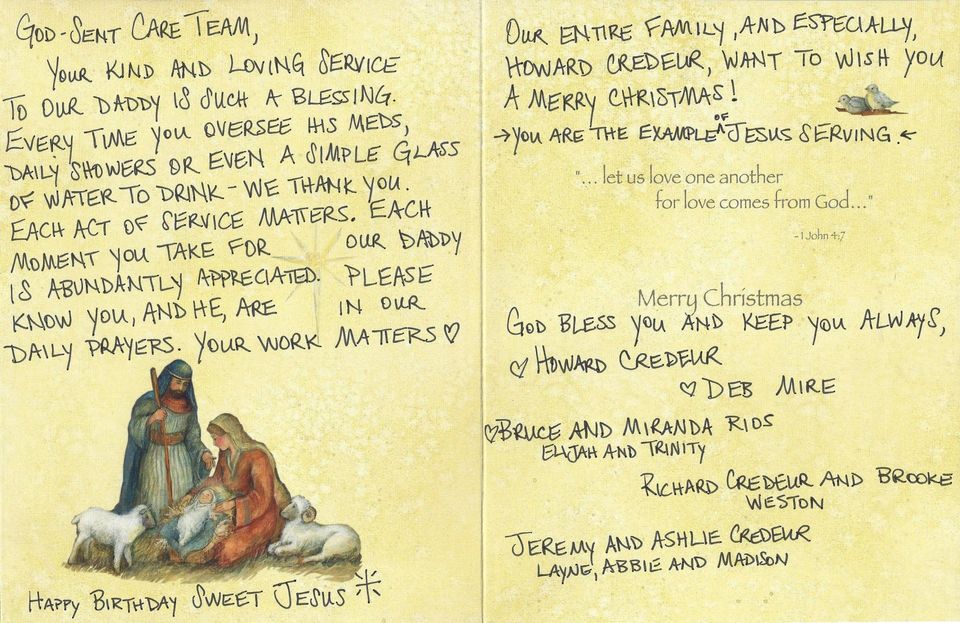 God-Sent Care Team,
Your kind and loving service
to our daddy is such a blessing.
Every time you oversee his meds,
daily showers or even a simple glass
of water to drink - we thank you.
Each act of service matters. Each
moment you take for our daddy
is abundantly appreciated. Please
know you, and he, are in our
daily prayers. Your work matters ♡
Happy Birthday Sweet Jesus
Our entire family, and especially,
Howard Credeur, want to wish you
a Merry Christmas!
→ You are the example of Jesus serving. ←
"... let us love one another
for love comes from God..."
- 1 John 4:7
Merry Christmas
God bless you and keep you always,
♡ Howard Credeur
♡ Deb Mire
♡ Bruce and Miranda Rios
Elijah and Trinity
Richard Credeur and Brooke
Weston
Jeremy and Ashlie Credeur
Layne, Abbie and Madison